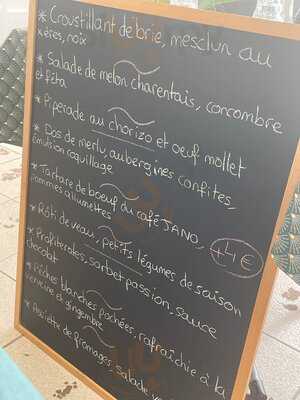 * Croustillant de brie, mesclun au
xérès, noix
* Salade de melon charentais, concombre
et féta
* Piperade au chorizo et oeuf mollet
* Dos de merlu, aubergines confites,
émulsion coquillage
* Tartare de boeuf du café JANO,
pommes allumettes
+4€
* Rôti de veau, petits légumes de saison
* Profiteroles, sorbet passion, sauce
chocolat
* Pêches blanches pochées, rafraîchie à la
verveine et gingembre
* Assiette de fromages, salade